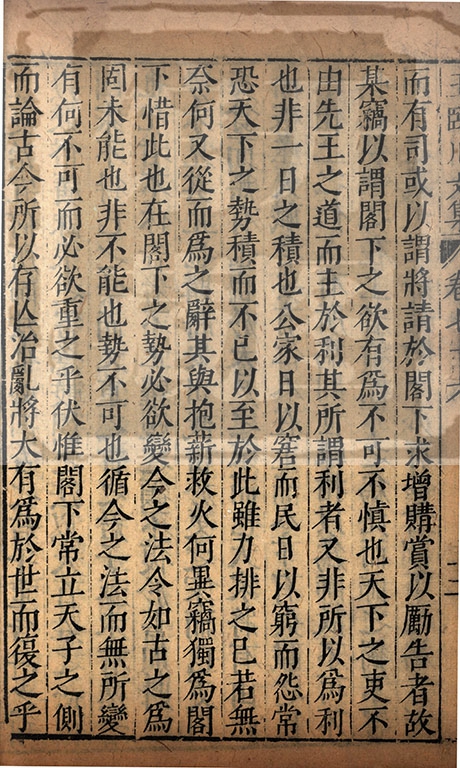 而有司或以謂將請於閣下求增購賞以勵告者故
某竊以謂閣下之欲有為不可不慎也天下之吏不
由先王之道而主於利其所謂利者又非所以為利
也非一日之積也公家日以窘而民日以窮而怨常
恐天下之勢積而不已以至於此雖力排之已若無
奈何又從而為之辭其與抱薪救火何異竊獨為閣
下惜此也在閣下之勢必欲變今之法令如古之為
固未能也非不能也勢不可也循今之法而無所變
有何不可而必欲重之乎伏惟閣下常立天子之側
而論古今所以有亾治亂將大有為於世而復之乎